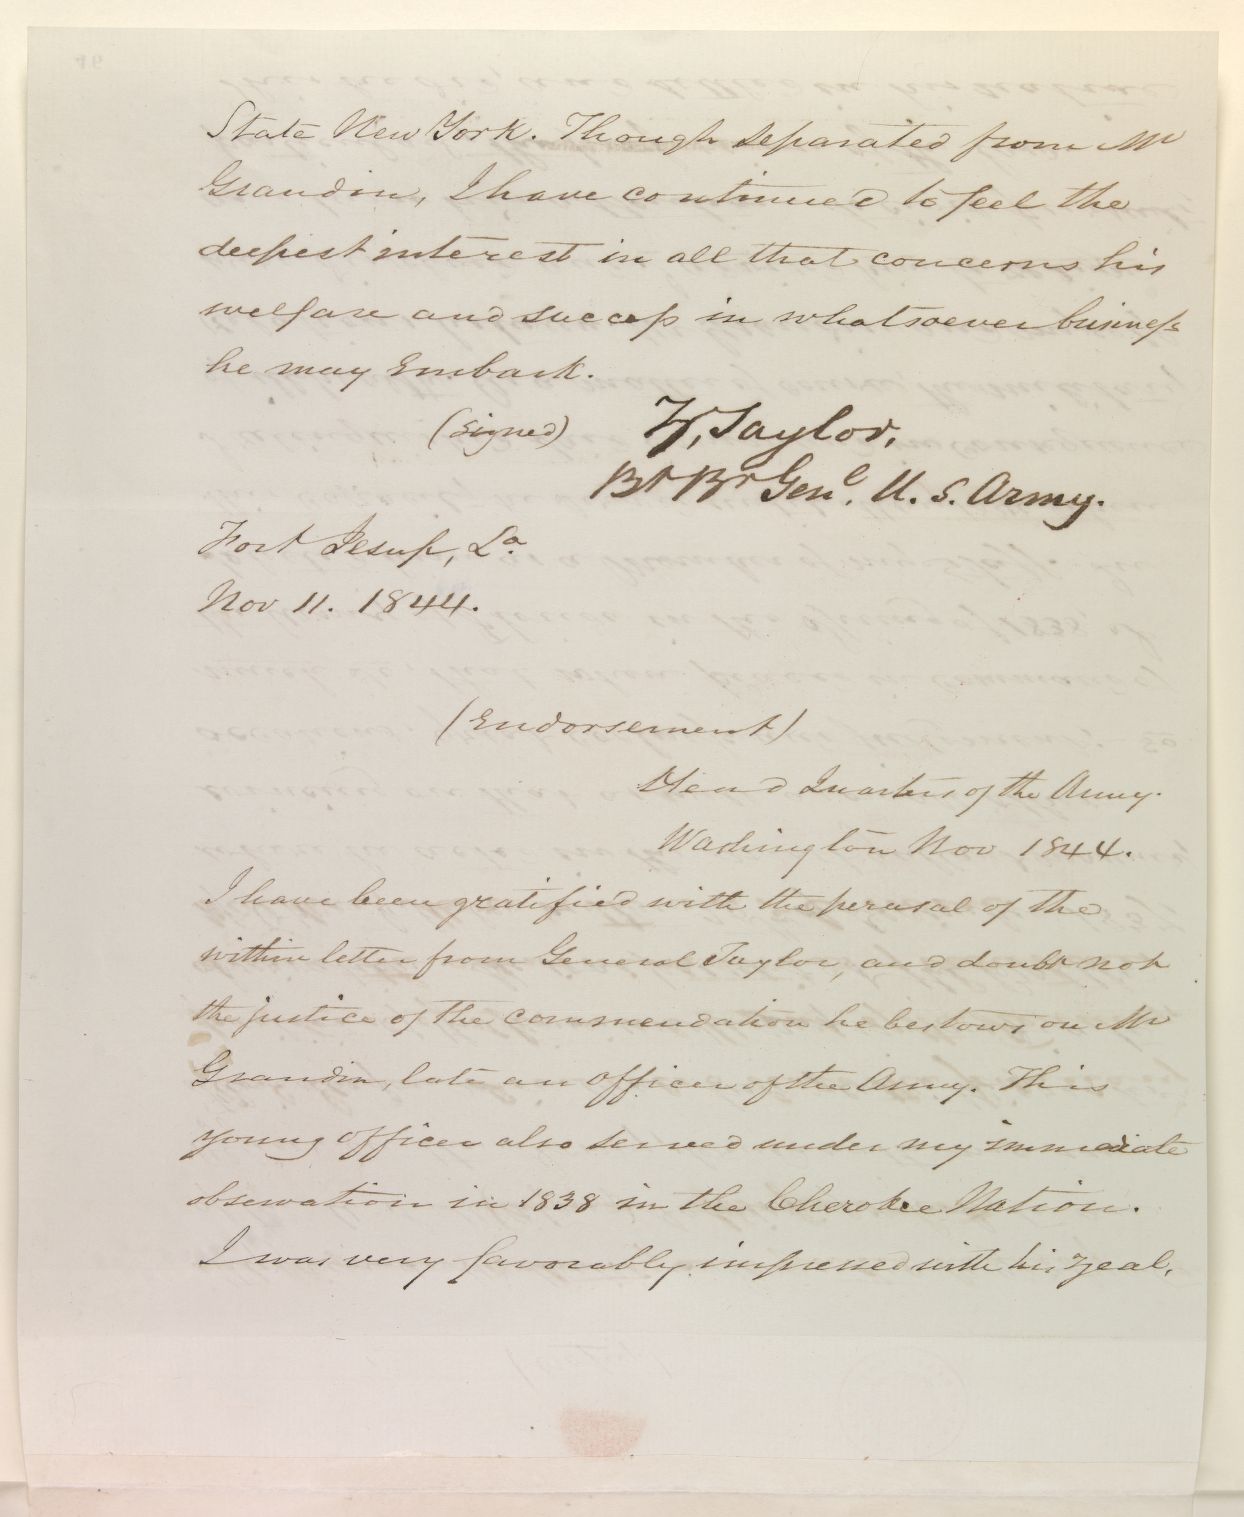 State New York. Though separated from Mr
Grandin, I have continued to feel the
deepest interest in all that concerns his
welfare and success in whatsoever business
he may Embark.
(Signed) Z, Taylor,
Bt Br Genl. U. S. Army.
Fort Jesup, La.
Nov 11. 1844.
(Endorsement)
Head Quarters of the Army.
Washington Nov 1844.
I have been gratified with the perusal of the
within letter from General Taylor, and doubt not
the justice of the commendation he bestows on Mr
Grandin, late an officer of the Army. This
young officer also served under my immediate
observation in 1838 in the Cherokee Nation.
I was very favorably impressed with his zeal,